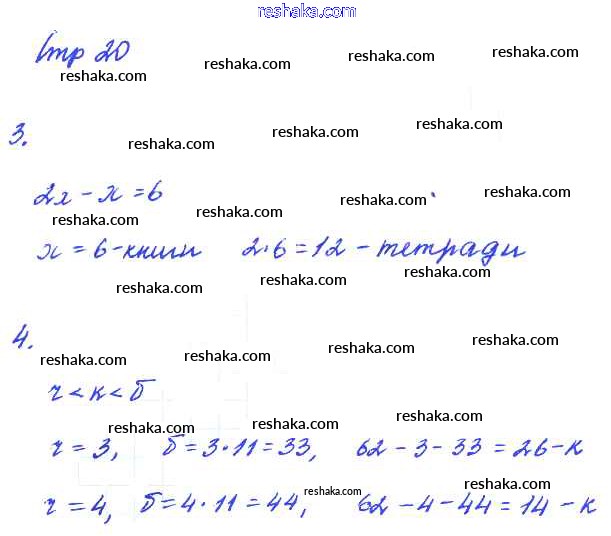 reshaka.com
Стр 20
reshaka.com reshaka.com reshaka.com
3.
reshaka.com reshaka.com reshaka.com
2x - x = 6
reshaka.com reshaka.com reshaka.com reshaka.com
x = 6 - книги 2·6 = 12 - тетради
reshaka.com reshaka.com reshaka.com
4.
reshaka.com reshaka.com reshaka.com reshaka.com
ч < к < б
reshaka.com reshaka.com reshaka.com
ч = 3, б = 3·11 = 33, 62 - 3 - 33 = 26 - к
reshaka.com reshaka.com reshaka.com reshaka.com
ч = 4, б = 4·11 = 44, 62 - 4 - 44 = 14 - к
reshaka.com reshaka.com reshaka.com